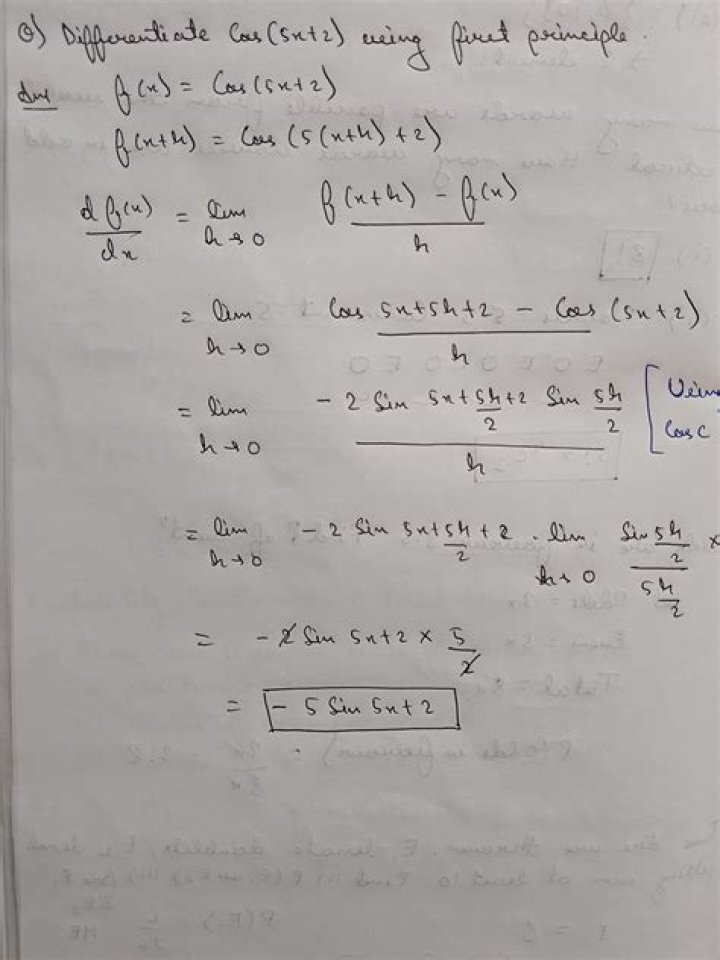 Q) Differentiate Cos(5x+2) using first principle.
Ans f(x) = Cos(5x+2)
f(x+h) = Cos (5(x+h)+2)
d f(x)/dx = lim h→0 f(x+h) - f(x) / h
= lim h→0 Cos 5x+5h+2 - Cos (5x+2) / h
= lim h→0 - 2 Sin 5x+5h/2+2 Sin 5h/2 / h [Using Cos C
= lim h→0 - 2 Sin 5x+5h/2+2 . lim h→0 Sin 5h/2 / 5h/2 ×
= - 2 Sin 5x+2 × 5/2
= - 5 Sin 5x+2